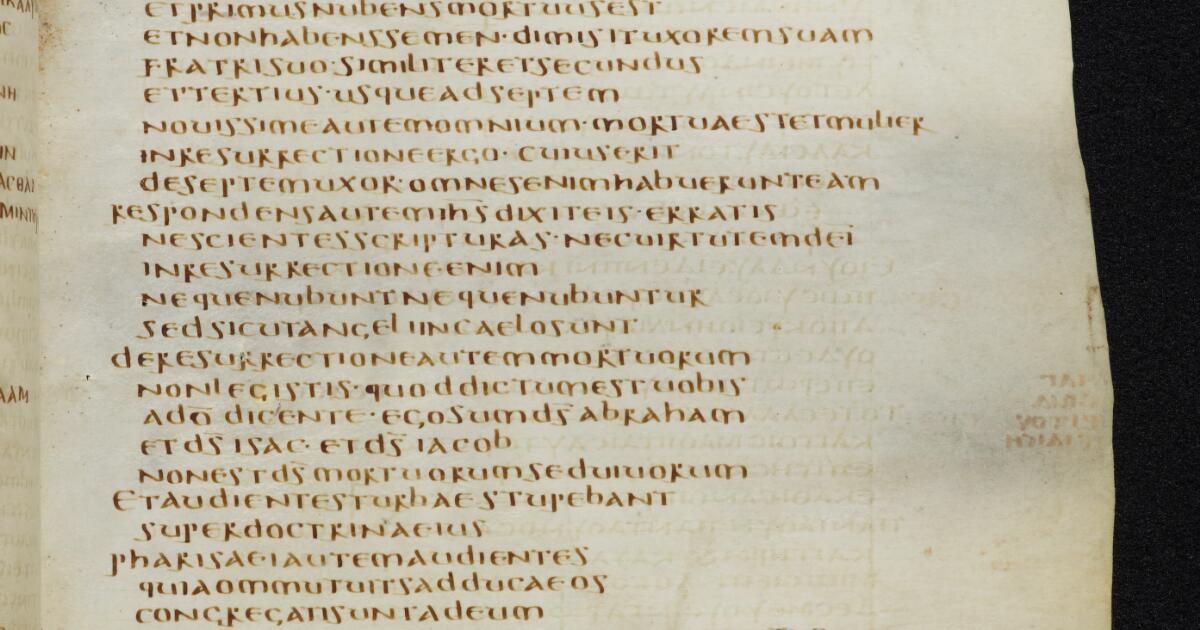 ETPRIMUSNUBENSMORTUUSEST
ETNONHABENSSEMEN·DIMISITUXOREMSUAM
FRATRISUO·SIMILITERETSECUNDUS
ETTERTIUS·USQUEADSEPTEM
NOUISSIMEAUTEMOMNIUM·MORTUAESTETMULIER
INRESURRECTIONEERGO·CUIUSERIT
DESEPTEMUXOR·OMNESENIMHABUERUNTEAM
RESPONDENSAUTEMIHS̄DIXITEIS·ERRATIS
NESCIENTESSCRIPTURAS·NECUIRTUTEMDEI
INRESURRECTIONE·ENIM
NEQUENUBUNTNEQUENUBUNTUR
SEDSICUTANGELIINCAELOSUNT
DERESURRECTIONEAUTEMMORTUORUM
NONLEGISTIS·QUODDICTUMESTUOBIS
ADŌDICENTE·EGOSUMDS̄ABRAHAM
ETDS̄ISAC·ETDS̄IACOB
NONESTDS̄MORTUORUMSEDUIUORUM
ETAUDIENTESTURBAESTUPEBANT
SUPERDOCTRINAEIUS
PHARISAEIAUTEMAUDIENTES
QUIAOMMUTUITSADDUCAEOS
CONGREGATISUNTADEUM